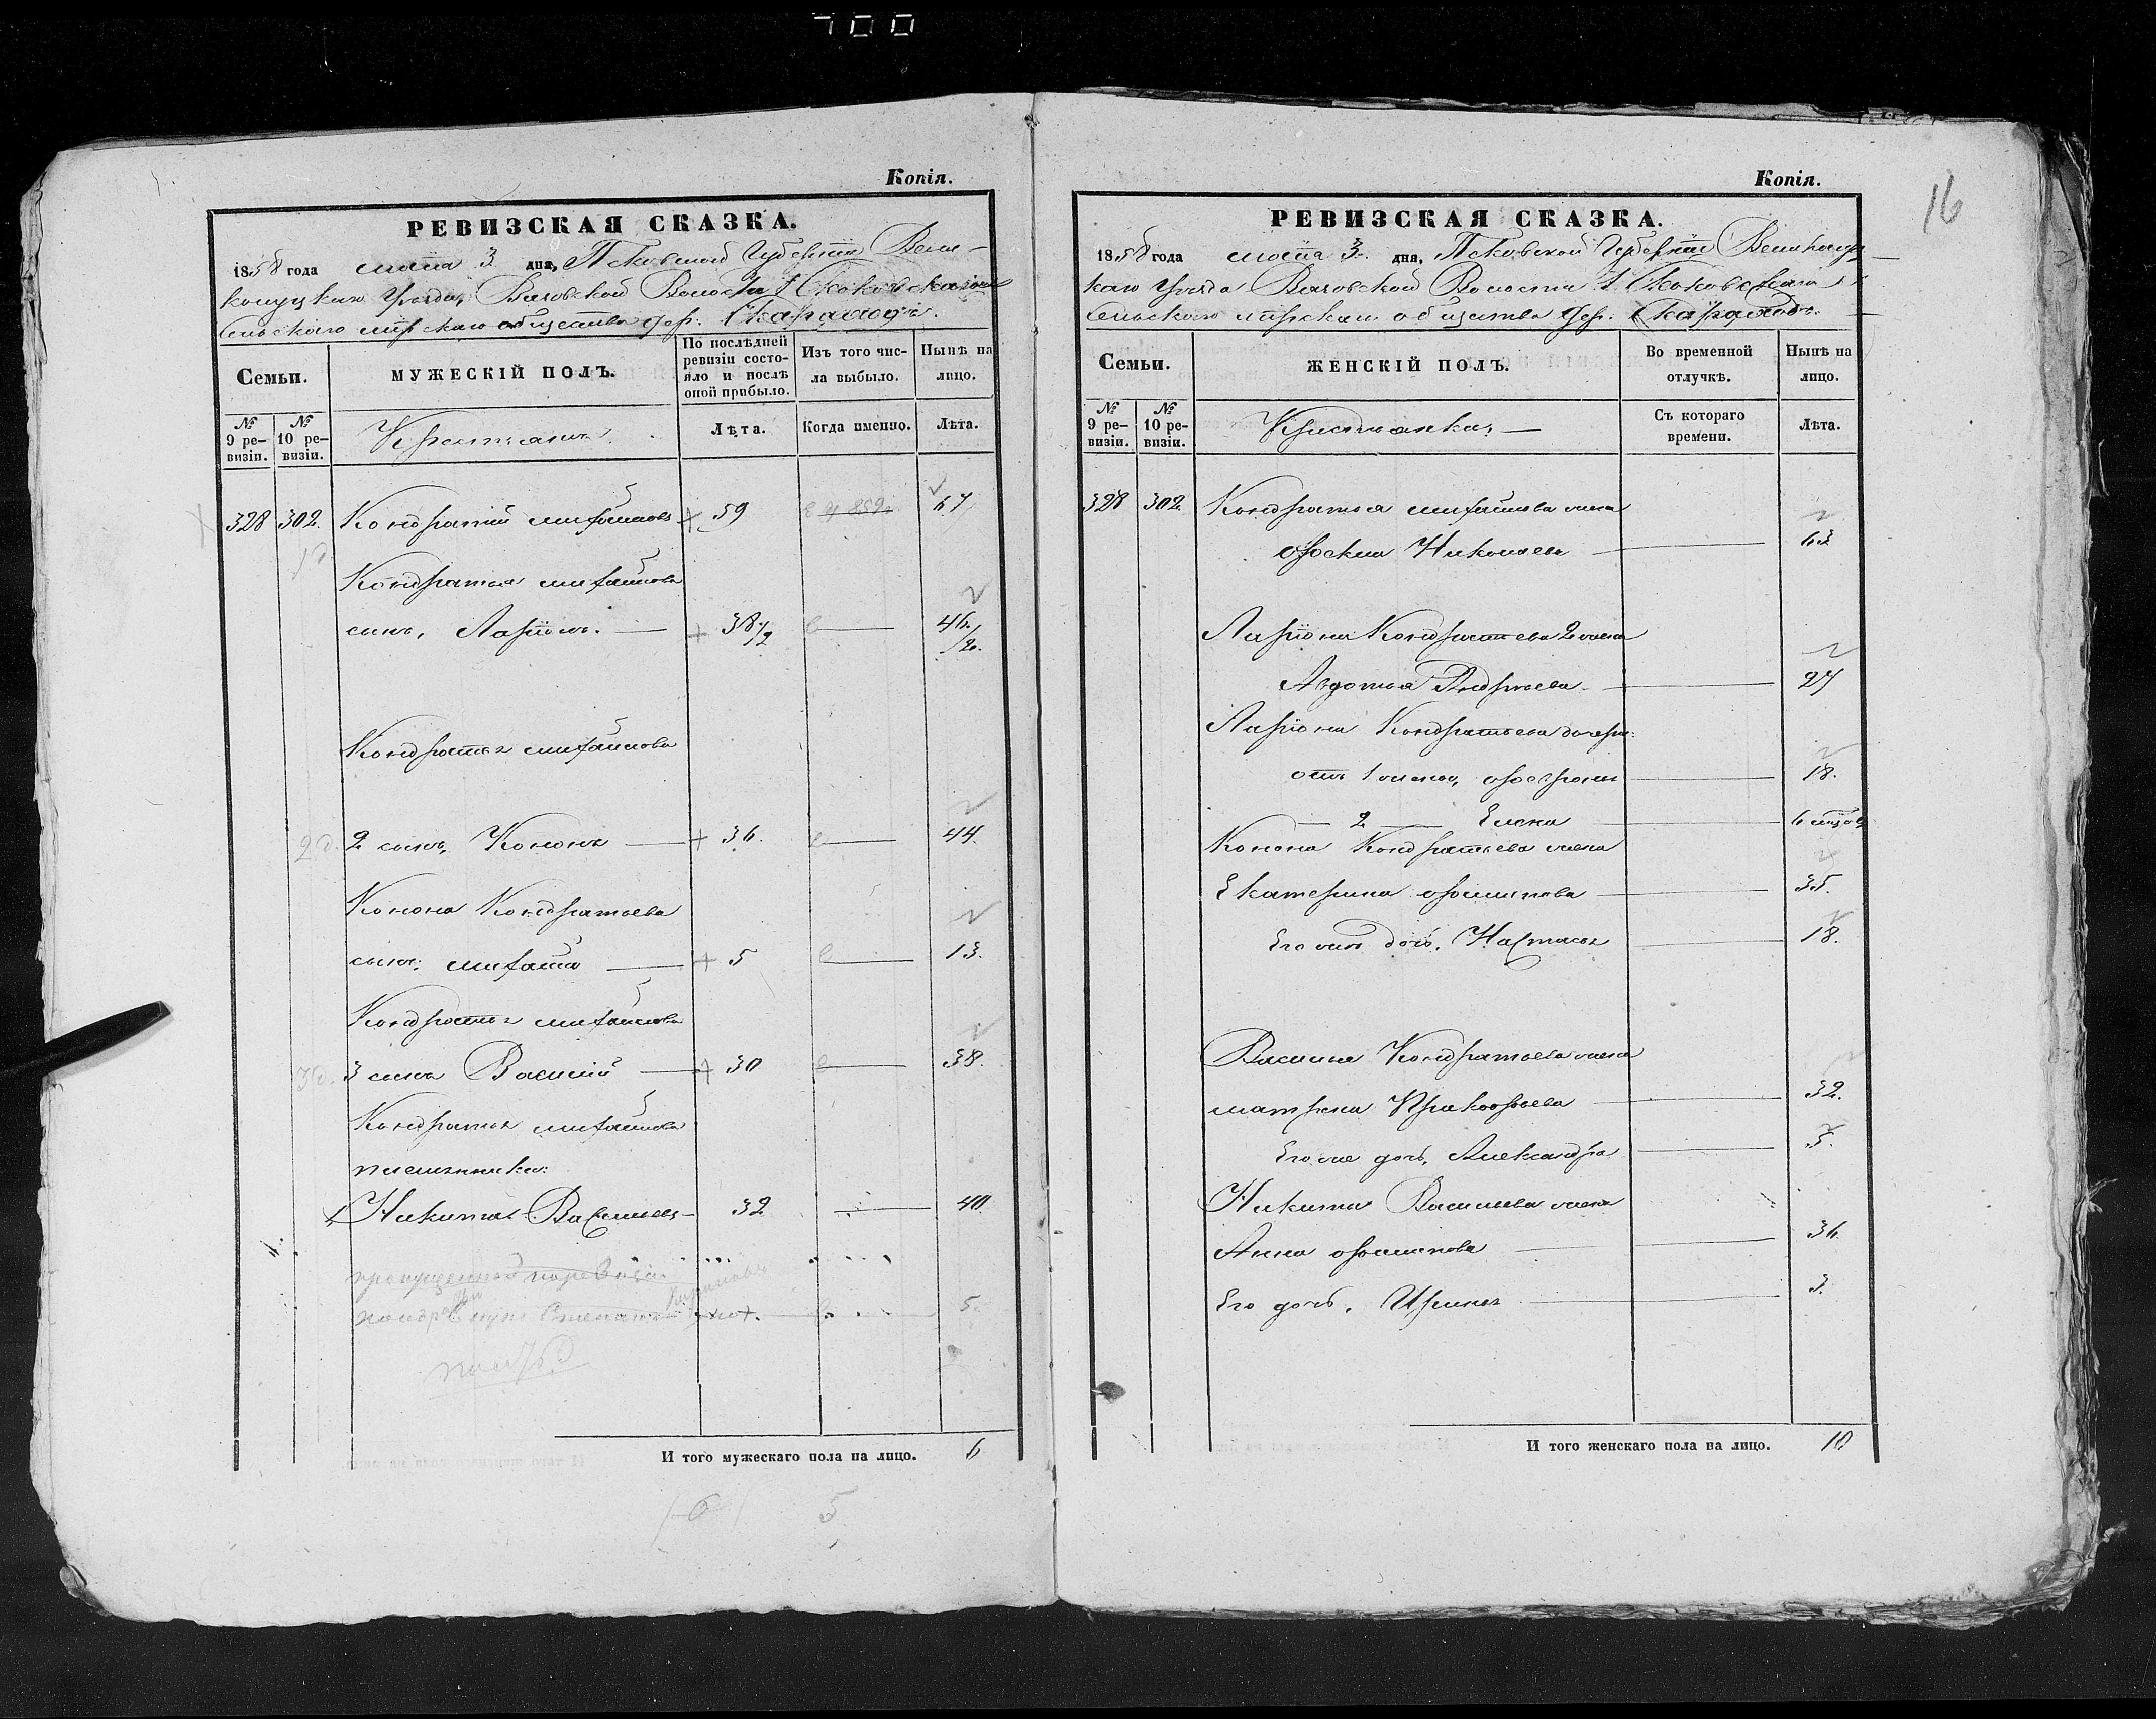 700
Копія.
РЕВИЗСКАЯ СКАЗКА.
1858 года маія 3 дня, Псковской Губерніи Вели-
колуцкаго Уѣзда, Вязовской Волости 1 Скоковскаго
Сельскаго мірскаго общества дер.
Семьи.
МУЖЕСКІЙ ПОЛЪ.
По послѣдней ревизіи состояло и послѣ оной прибыло.
Изъ того числа выбыло.
Нынѣ на лицо.
№ 9 ревизіи.
№ 10 ревизіи.
Крестьяне
Лѣта.
Когда именно.
Лѣта.
328 302. Кондратій Михайловъ 59 67
1 д
Кондратья Михайлова
сынъ, Ларіонъ. — 38 1/2 46 1/2.
Кондратья Михайлова
2 д. 2 сынъ, Кононъ — 36. 44.
Конона Кондратьева
сынъ: Михайло — 5 13.
Кондратья Михайлова
3 д. 3 сынъ Василій — 30 38.
Кондратья Михайлова
племянники:
Никита Васильевъ — 32 40
5.
И того мужескаго пола на лицо. 6
6 5
16
Копія.
РЕВИЗСКАЯ СКАЗКА.
1858 года маія 3. дня, Псковской Губерніи Великолуц-
каго Уѣзда Вязовской Волости 1 Скоковскаго
Сельскаго мірскаго общества дер.
Семьи.
ЖЕНСКІЙ ПОЛЪ.
Во временной отлучкѣ.
Нынѣ на лицо.
№ 9 ревизіи.
№ 10 ревизіи.
Крестьянки. —
Съ котораго времени.
Лѣта.
328 302. Кондратья Михайлова жена
Николаева 63
Ларіона Кондратьева 2 жена
Авдотья Андреева — 27
Ларіона Кондратьева дочери:
отъ 1 жены, 18.
— 2 — Елена 6 мѣсяц
Конона Кондратьева жена
Екатерина Филипова — 35.
Его же дочь, Настасья 18.
Василья Кондратьева жена
Матрена Прокофьева 32.
Его же дочь, Александра 5.
Никиты Васильева жена
Анна Филипова 36.
Его дочь, Ирина 3.
И того женскаго пола на лицо. 10